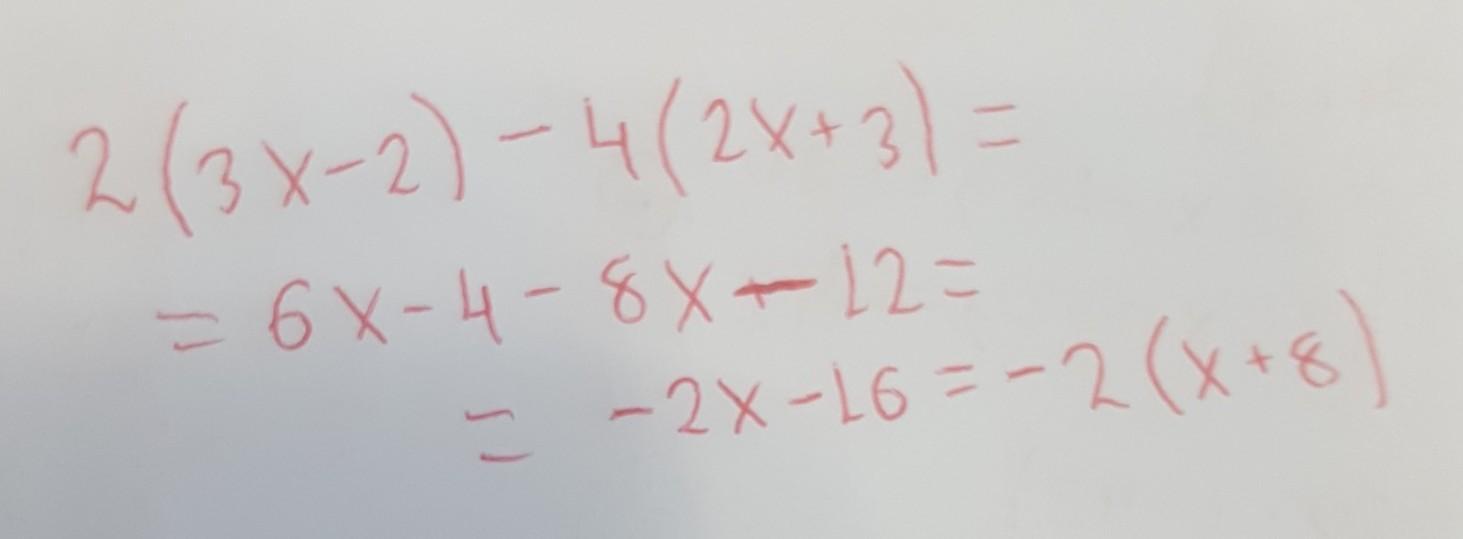 2(3x-2) - 4(2x+3) =
= 6x - 4 - 8x - 12 =
= -2x - 16 = -2(x+8)